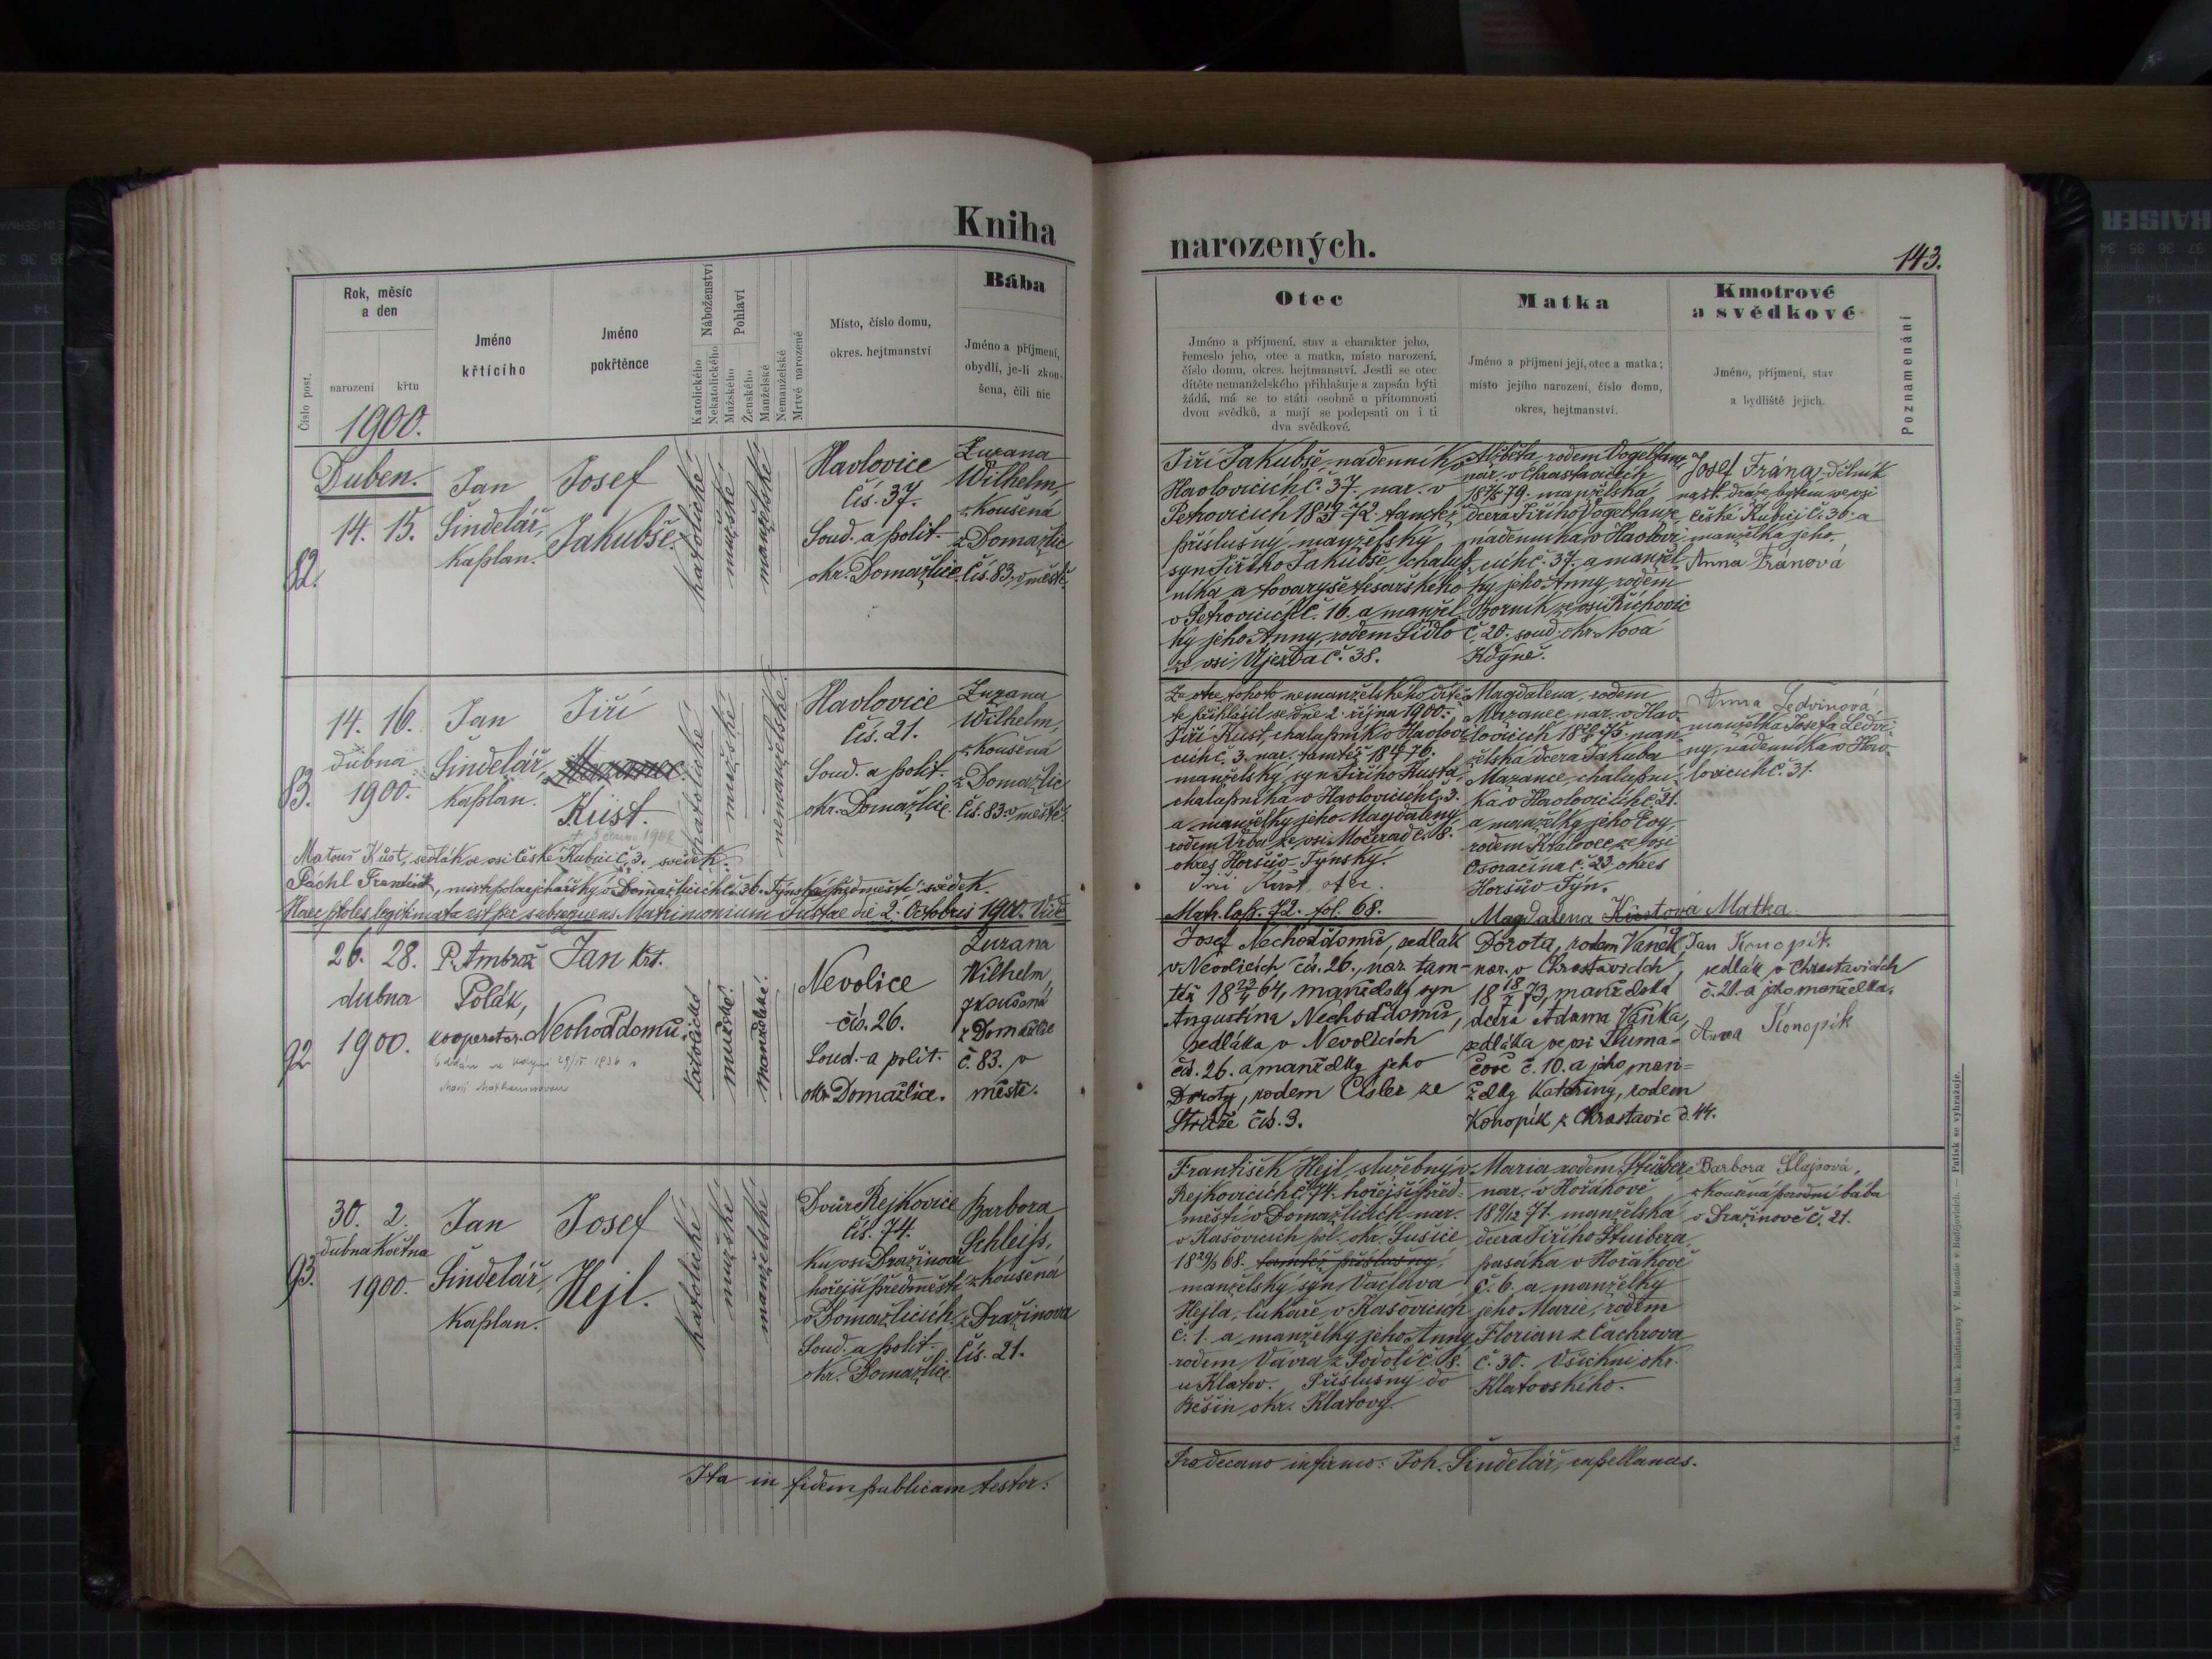 Kniha
narozených.
143.
Číslo post.
Rok, měsíc
a den
narození křtu
1900.
Jméno
křtícího
Jméno
pokřtěnce
Náboženství
Katolického
Nekatolického
Pohlaví
Mužského
Ženského
Manželské
Nemanželské
Mrtvě narozené
Místo, číslo domu,
okres. hejtmanství
Bába
Jméno a příjmení,
obydlí, je-li zkou-
šena, čili nic
Otec
Jméno a příjmení, stav a charakter jeho,
řemeslo jeho, otec a matka, místo narození,
číslo domu, okres. hejtmanství. Jestli se otec
dítěte nemanželského přihlašuje a zapsán býti
žádá, má se to státi osobně u přítomnosti
dvou svědků, a mají se podepsati on i ti
dva svědkové.
Matka
Jméno a příjmení její, otec a matka;
místo jejího narození, číslo domu,
okres, hejtmanství.
Kmotrové
a svědkové
Jméno, příjmení, stav
a bydliště jejich
Poznamenání
Duben.
14. 15.
82.
Jan
Šindelář,
kaplan.
Josef
Jakubše.
katolické
mužské
manželské
Havlovice
čís. 37.
Soud. a polit.
okr. Domažlice
Zuzana
Wilhelm,
zkoušená
z Domažlic
čís. 83. v městě.
Jiří Jakubše, nádenník v
Havlovicích č. 37. nar. v
Petrovicích 18 72. tamtéž
příslušný, manželský
syn Jiřího Jakubše, chalup-
níka a tovaryše tesařského
v Petrovicích č. 16. a manžel-
ky jeho Anny, rodem Sídlo
ze vsi Újezda č. 38.
Alžběta, rodem Vogeltanz
nar. v Chrastavicích
18 79. manželská
dcera Jiřího Vogeltanze
nádenníka v Havlovi-
cích č. 37. a manžel-
ky jeho Anny, rodem
Borník ze vsi Říchovic
č. 20. soud. okr. Nová
Kdyně.
Josef Frána, dělník
na st. dráze bytem ve vsi
České Kubici č. 36. a
manželka jeho
Anna Fránová
14. 16.
dubna
83. 1900.
Jan
Šindelář,
kaplan.
Jiří
Mazanec.
Kust.
katolické
mužské
nemanželské
Havlovice
čís. 21.
Soud. a polit.
okr. Domažlice.
Zuzana
Wilhelm,
zkoušená
z Domažlic
čís. 83. v městě.
Matouš Kust, sedlák ve vsi České Kubici č. 3. svědek.
Páchl František, mistr polarjchařský v Domažlicích č. 36. Týnské předměstí svědek.
Haec proles legitimata est per subsequens Matrimonium Justae die 2. Octobris 1900. Vide
Za otce tohoto nemanželského dítě-
te přihlásil se dne 2. října 1900.
Jiří Kust, chalupník v Havlovi-
cích č. 3. nar. tamtéž 18 76.
manželský syn Jiřího Kusta,
chalupníka v Havlovicích č. 3.
a manželky jeho Magdaleny,
rodem Vrba ze vsi Močerad č. 8.
okres Horšův-Týnský.
Jiří Kust, otec.
Matr. cop. 72. fol. 68.
Magdalena, rodem
Mazanec nar. v Hav-
lovicích 18 75. man-
želská dcera Jakuba
Mazance, chalupní-
ka v Havlovicích č. 21.
a manželky jeho Evy,
rodem Královec ze vsi
Osvračína č. 23. okres
Horšův Týn.
Magdalena Kustová Matka.
Anna Ledvinová,
manželka Josefa Ledvi-
ny, nádenníka v Hav-
lovicích č. 31.
26. 28.
dubna
92 1900.
P. Ambrož
Polák,
kooperator.
Jan Křt.
Nechoďdomů.
katolické
mužské.
manželské.
Nevolice
čís. 26.
Soud. a polit.
okr. Domažlice.
Zuzana
Wilhelm,
zkoušená
z Domažlic
č. 83. v
městě.
Josef Nechoďdomů, sedlák
v Nevolicích čís. 26., nar. tam-
též 18 64, manželský syn
Augustina Nechoďdomů,
sedláka v Nevolicích
čís. 26. a manželky jeho
Doroty, rodem Cisler ze
Stráže čís. 3.
Dorota, rodem Vaněk,
nar. v Chrastavicích
18 73, manželská
dcera Adama Vaňka,
sedláka ve vsi Tluma-
čově č. 10. a jeho man-
želky Kateřiny, rodem
Konopík z Chrastavic č. 44.
Jan Konopík
sedlák v Chrastavicích
č. 21. a jeho manželka.
Anna Konopík
30. 2.
dubna května
93. 1900.
Jan
Šindelář,
kaplan.
Josef
Hejl.
katolické
mužské
manželské
Dvůr Rejkovice
čís. 74.
ku vsi Dražinova
hořejší předměstí
v Domažlicích.
Soud. a polit.
okr. Domažlice
Barbora
Schleiss,
zkoušená
z Dražinova
čís. 21.
František Hejl, služebný v
Rejkovicích č. 74. hořejší před-
městí v Domažlicích nar.
v Kašovicích pol. okr. Sušice
18 29/3 68. tamtéž příslušný,
manželský syn Václava
Hejla, lukaře v Kašovicích
č. 1. a manželky jeho Anny
rodem Vávra z Podolí č. 8.
u Klatov. Příslušný do
Běšin okr. Klatovy.
Maria rodem Stuiber,
nar. v Hořákově
18 9/12 71. manželská
dcera Jiřího Stuibera
pasáka v Hořákově
č. 6. a manželky
jeho Marie, rodem
Florian z Čachrova
č. 30. Všichni okr.
Klatovského.
Barbora Šlajsová,
zkoušená porodní bába
v Dražinově č. 21.
Ita in fidem publicam testor:
Pro decano infirmo: Joh. Šindelář, capellanus.
Tisk a sklad tisk. knihtiskárny V. Matouše v Budějovicích. — Patisk se vyhrazuje.